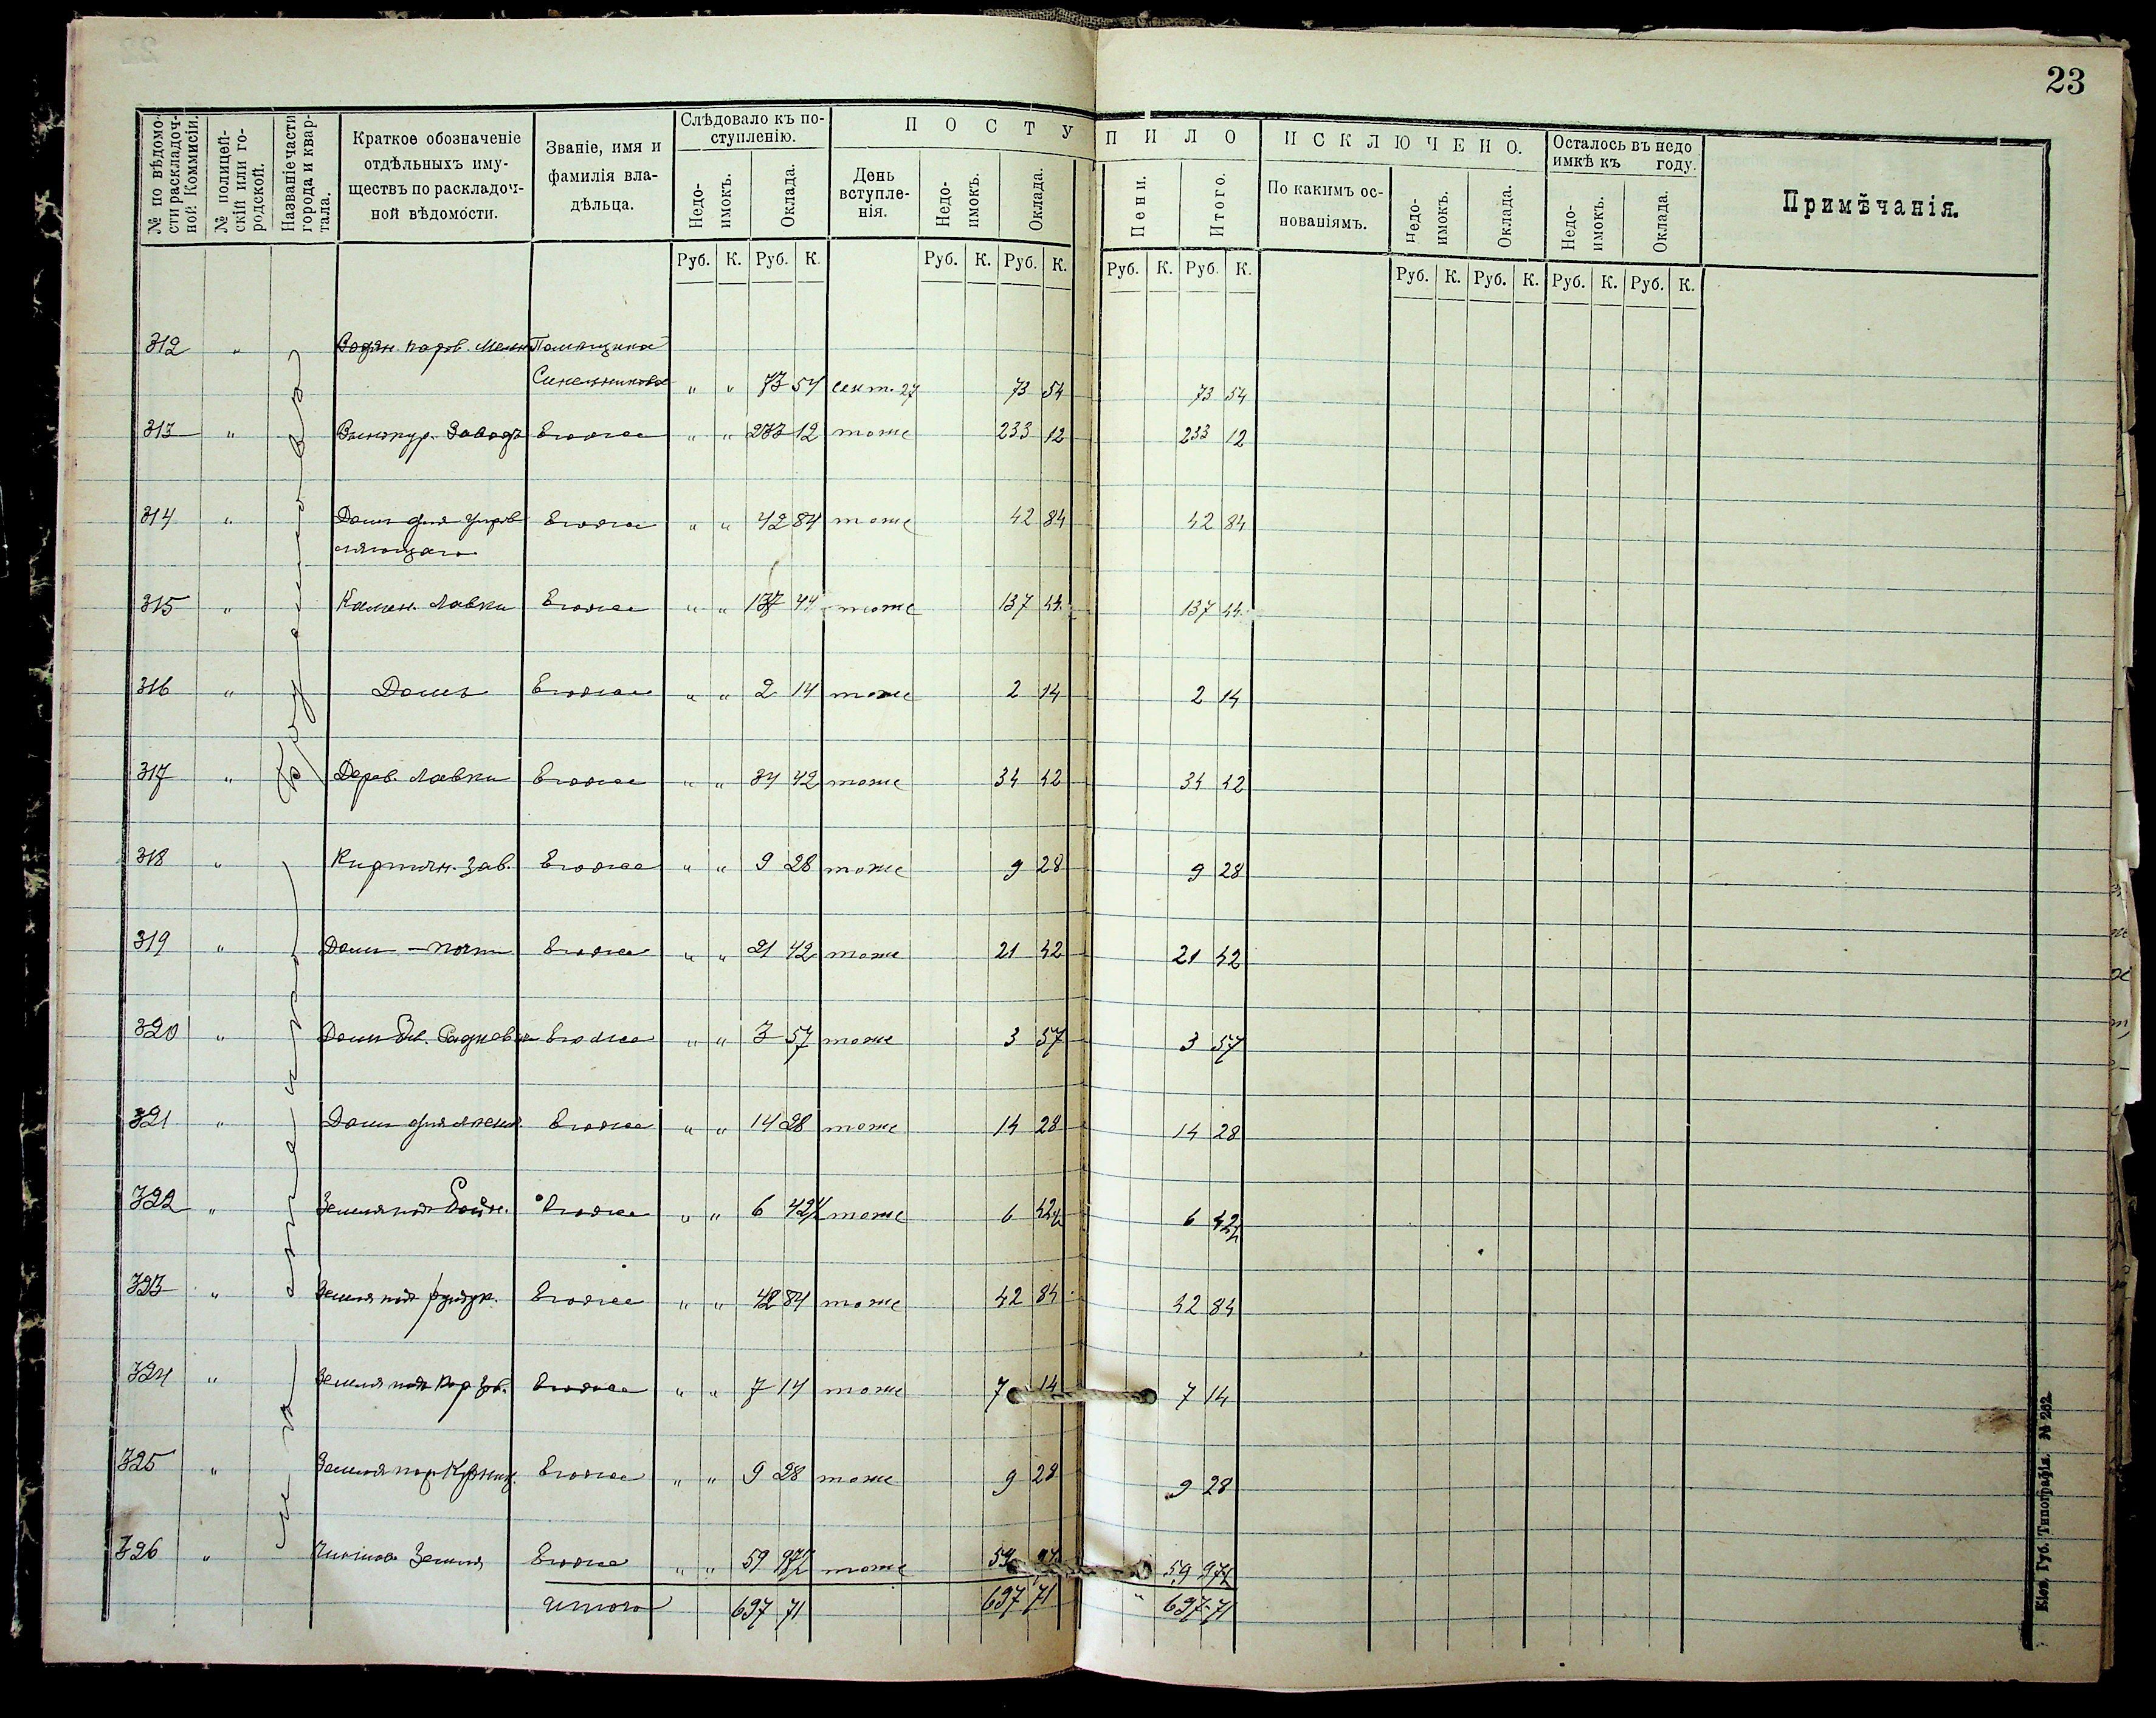 23
№ по вѣдомости раскладочной Коммисіи.
№ полицейскій или городской.
Названіе части города и квартала.
Краткое обозначеніе отдѣльныхъ имуществъ по раскладочной вѣдомости.
Званіе, имя и фамилія владѣльца.
Слѣдовало къ поступленію.
Недоимокъ.
Оклада.
ПОСТУПИЛО
День вступленія.
Недоимокъ.
Оклада.
Пени.
Итого.
ИСКЛЮЧЕНО.
По какимъ основаніямъ.
Недоимокъ.
Оклада.
Осталось въ недоимкѣ къ году.
Недоимокъ.
Оклада.
Примѣчанія.
Руб. К. Руб. К. Руб. К. Руб. К. Руб. К. Руб. К. Руб. К. Руб. К. Руб. К. Руб. К.
312 " Водян. паров. Помѣщика
Синельникова " " 73 54 сент. 27 73 54 73 54
313 " Винокур. Заводъ Егоже " " 233 12 тоже 233 12 233 12
314 " Домъ для управ Егоже " " 42 84 тоже 42 84 42 84
ляющаго
315 " Камен. Лавки Егоже " " 137 44 тоже 137 44 137 44
316 " Домъ Егоже " " 2 14 тоже 2 14 2 14
317 " Дерев. Лавки Егоже " " 34 42 тоже 34 42 34 42
318 " Кирпичн. зав. Егоже " " 9 28 тоже 9 28 9 28
319 " Домъ - почта Егоже " " 21 42 тоже 21 42 21 42
320 " Домъ Егоже " " 3 57 тоже 3 57 3 57
321 " Домъ для Егоже " " 14 28 тоже 14 28 14 28
322 " Земля подъ Егоже " " 6 42½ тоже 6 42½ 6 42½
323 " Земля подъ Егоже " " 42 84 тоже 42 84 42 84
324 " Земля подъ Егоже " " 7 14 тоже 7 14 7 14
325 " Земля под Егоже " " 9 28 тоже 9 28 9 28
326 " Земля Егоже " " 59 97½ тоже 59 97½ 59 97½
Итого 697 71 697 71 " 697 71
мѣстечко
Кіев. Губ. Типографія. № 262